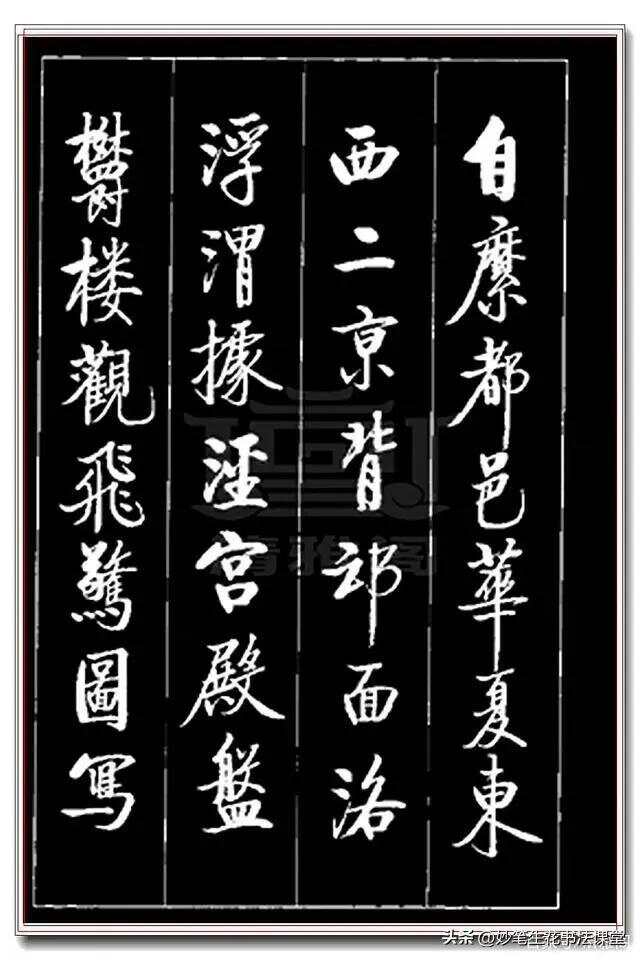 自縻都邑華夏東
西二京背邙面洛
浮渭據涇宮殿盤
鬱楼觀飛驚圖寫
精雅阁
头条@妙笔生花书法课堂